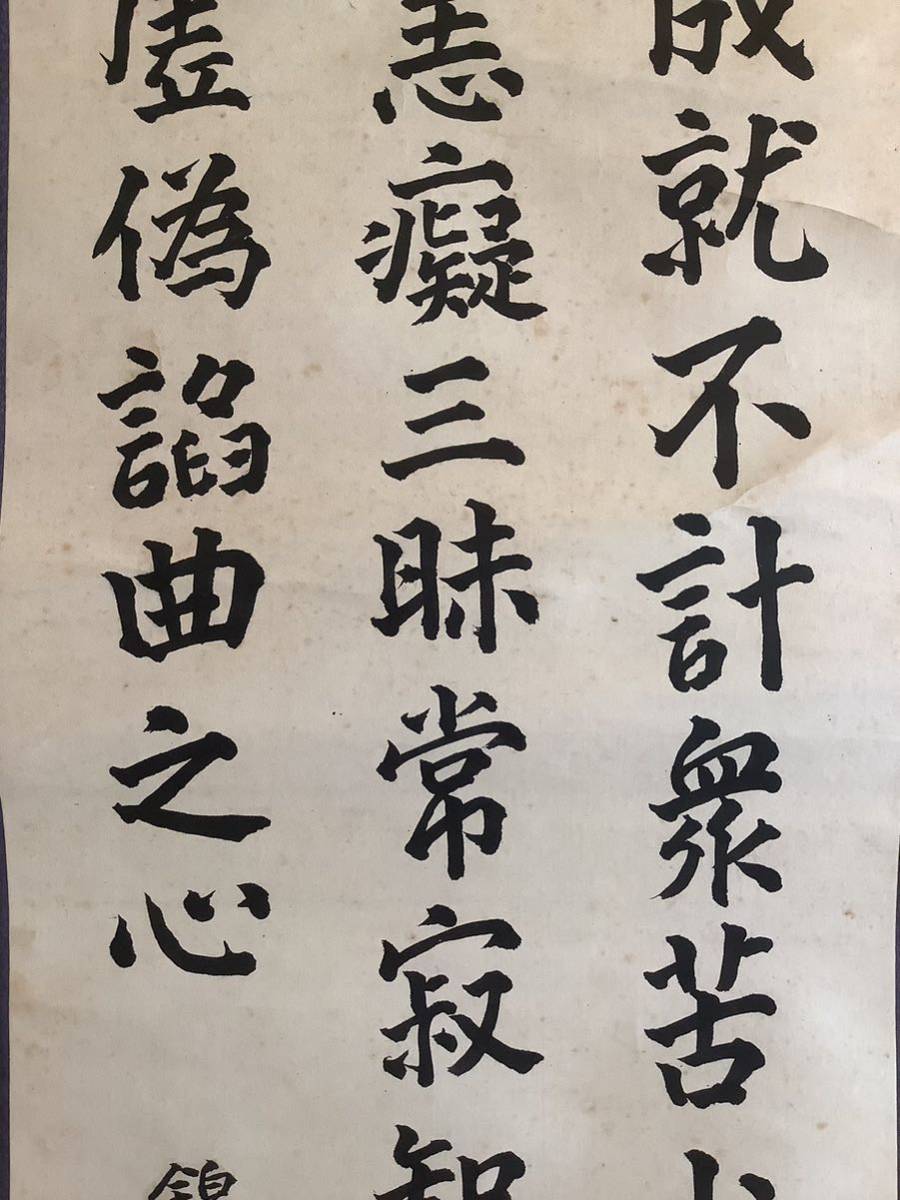 成就不計衆苦
恚癡三昧常寂智
虚偽諂曲之心